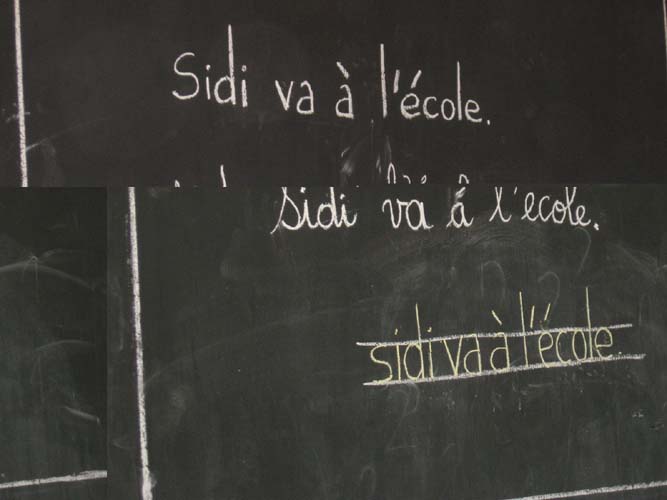 Sidi va à l'école.
Sidi va á l'ecole.
sidi va à l'école.